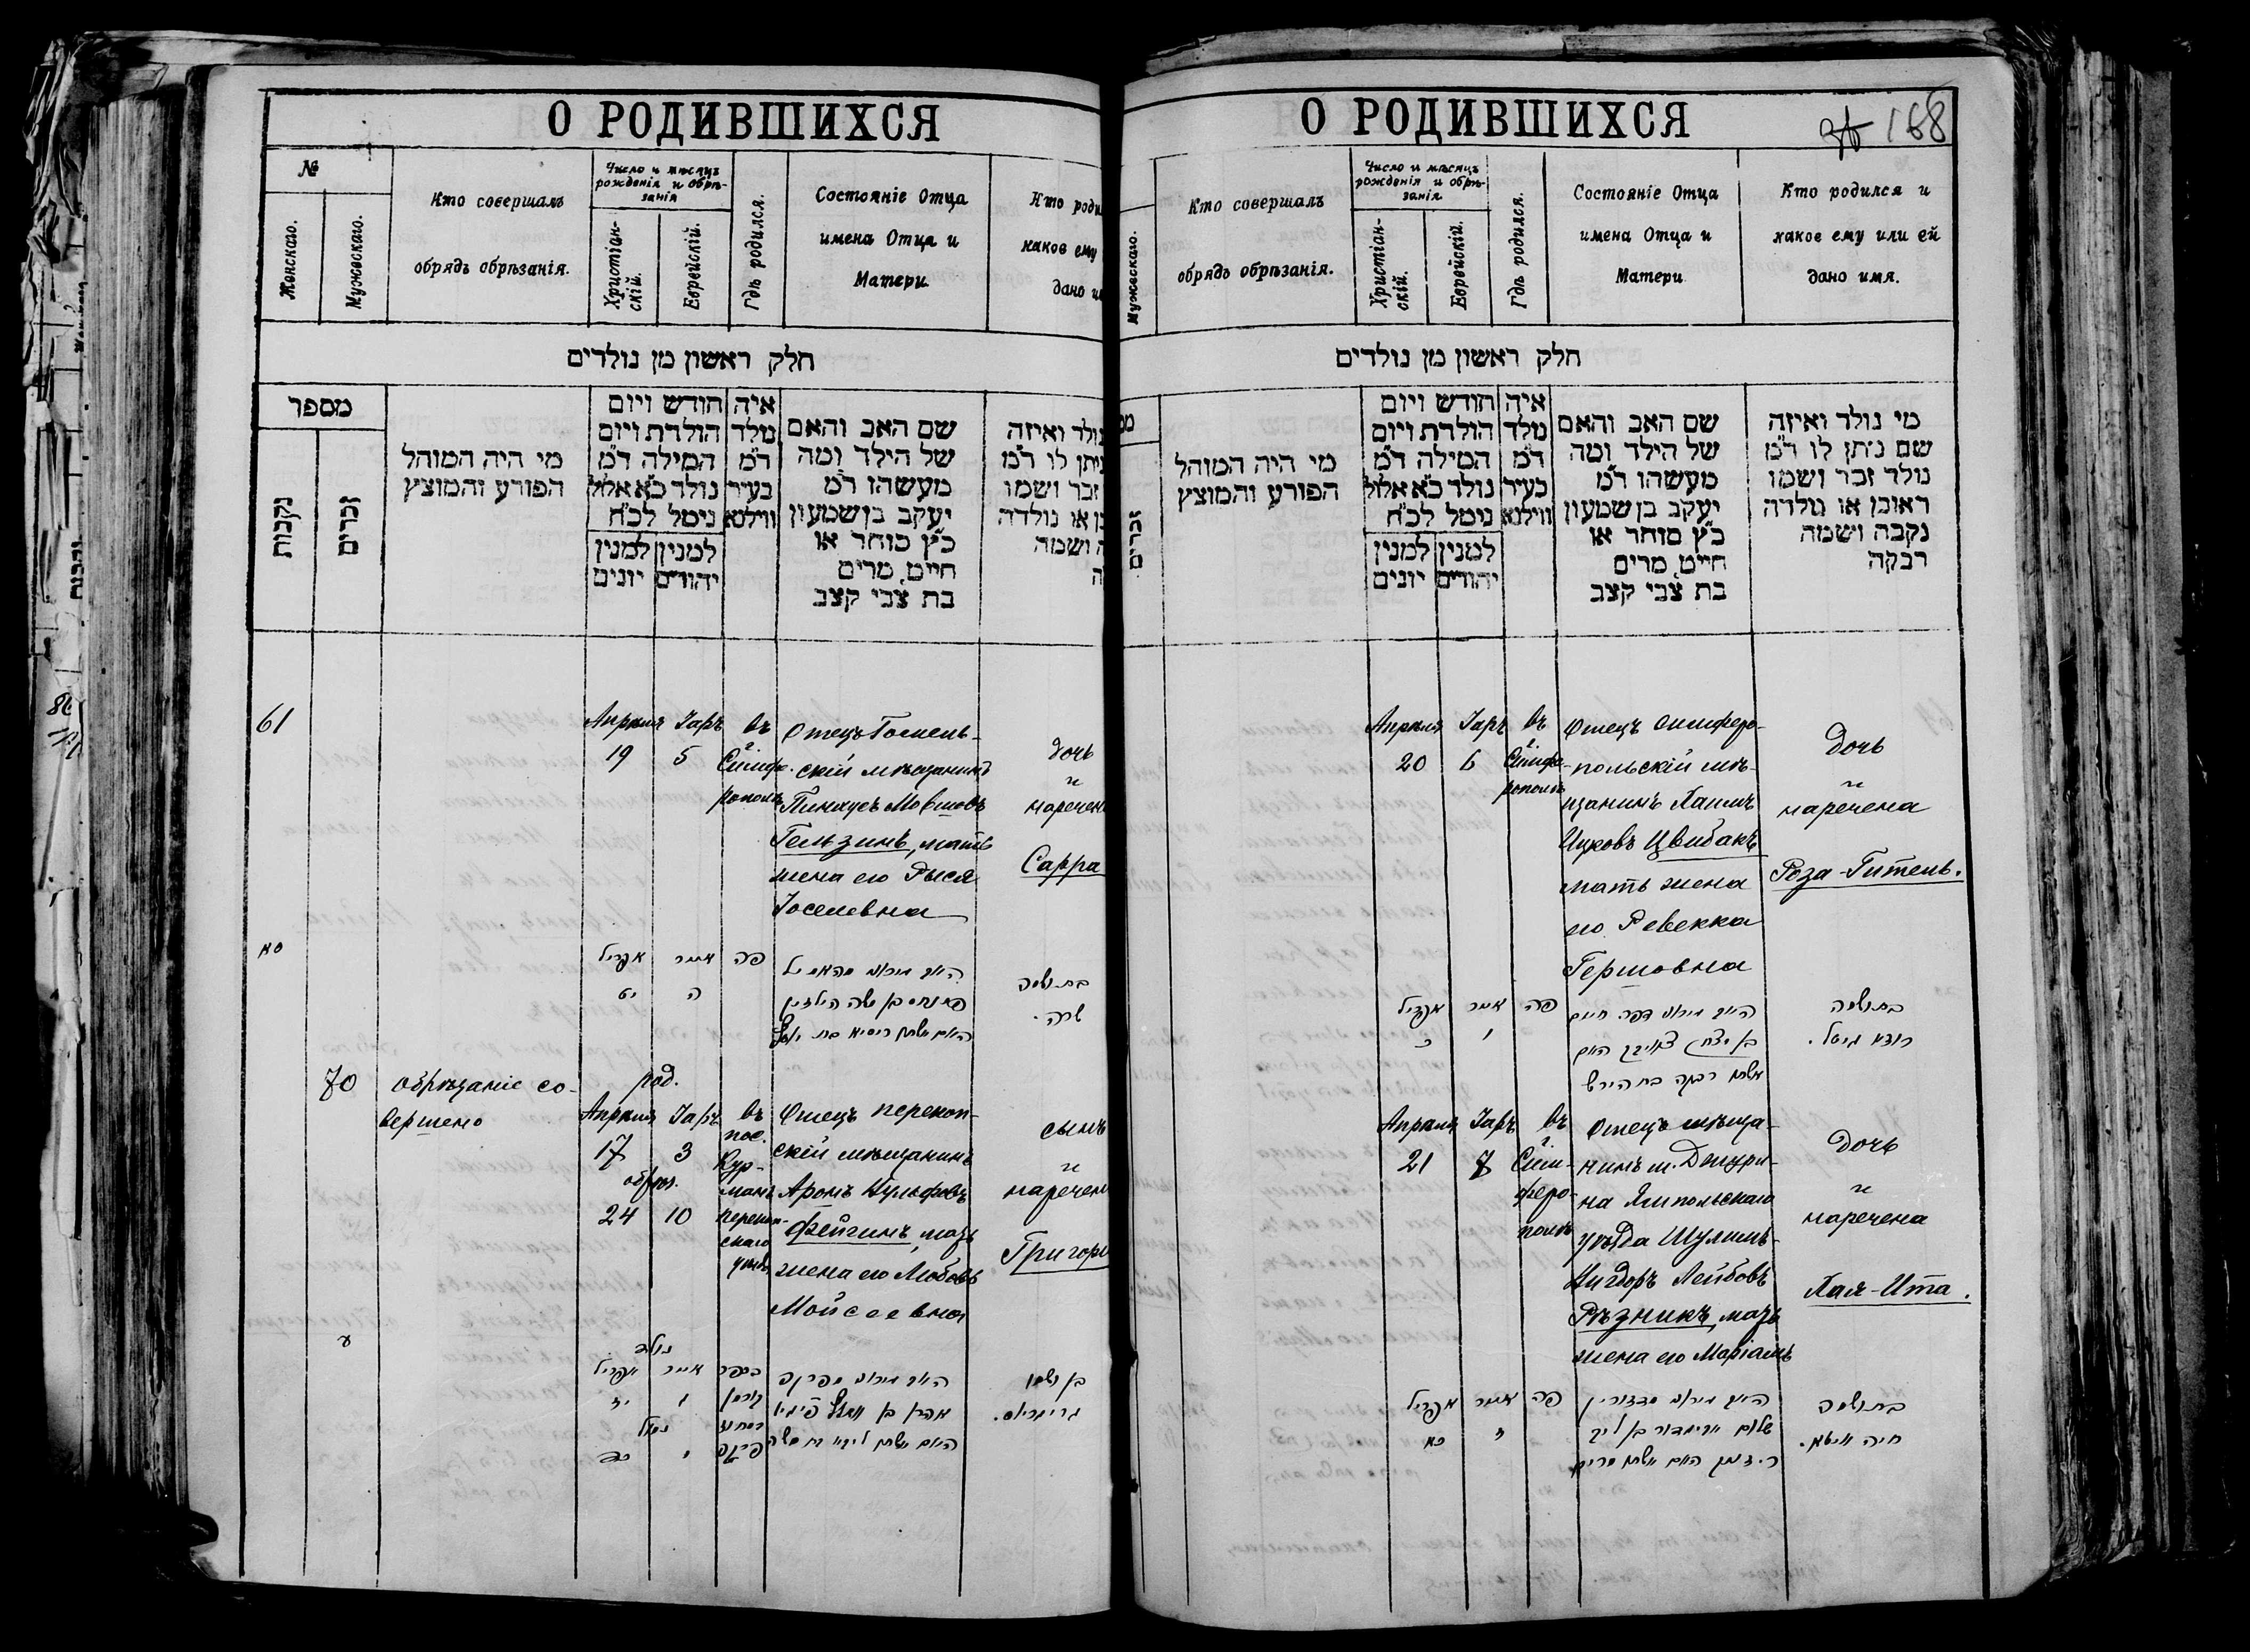 О РОДИВШИХСЯ
№
Женскаго.
Мужескаго.
Кто совершалъ
обрядъ обрѣзанія.
Число и мѣсяцъ
рожденія и обрѣ-
занія
Христіан-
скій.
Еврейскій.
Гдѣ родился.
Состояніе Отца
имена Отца и
Матери
Кто роди
какое ему
дано и
חלק ראשון מן נולדים
מספר
נקבות
זכרים
מי היה המוהל
הפורע והמוצץ
חודש ויום
הולדת ויום
המילה ד״מ
נולד כ״א אלול
נימל לכ״ח
למנין למנין
יהודים יונים
איה
נולד
ד״מ
בעיר
ווילנא
שם האב והאם
של הילד ומה
מעשהו ד״מ
יעקב בן שמעון
כ״ץ סוחר או
חייט, מרים
בת צבי קצב
נולד ואיזה
ניתן לו ד״מ
זכר ושמו
או נולדה
ושמה
61
Апрѣля Іаръ въ
19 5 г.
Симфе-
рополѣ
Отецъ Гомель-
скій мѣщанинъ
Пинхусъ Мовшовъ
Гельзинъ, мать
жена его Рыся
Іоселевна
дочь
и
наречен
Сарра
סא
אפריל אייר פה
יט ה
בת ושמה
שרה.
70
обрѣзаніе со-
вершено
род.
Апрѣля Іаръ въ
17 3 пос.
обрѣз.
24 10
Кур-
манъ
перекоп-
скаго
уѣзд
Отецъ перекоп-
скій мѣщанинъ
Аронъ Вульфовъ
Фейгинъ, мать
жена его Любовь
Мойсеевна
сынъ
и
наречен
Григорі
ע
נולד
אפריל אייר
בן ושמו
О РОДИВШИХСЯ
168
Мужескаго.
Кто совершалъ
обрядъ обрѣзанія.
Число и мѣсяцъ
рожденія и обрѣ-
занія.
Христіан-
скій.
Еврейскій.
Гдѣ родился.
Состояніе Отца
имена Отца и
Матери
Кто родился и
какое ему или ей
дано имя.
חלק ראשון מן נולדים
זכרים
מי היה המוהל
הפורע והמוצץ
חודש ויום
הולדת ויום
המילה ד״מ
נולד כ״א אלול
נימל לכ״ח
למנין למנין
יהודים יונים
איה
נולד
ד״מ
בעיר
ווילנא
שם האב והאם
של הילד ומה
מעשהו ד״מ
יעקב בן שמעון
כ״ץ סוחר או
חייט, מרים
בת צבי קצב
מי נולד ואיזה
שם ניתן לו ד״מ
נולד זכר ושמו
ראובן או נולדה
נקבה ושמה
רבקה
Апрѣля Іаръ въ
20 6 г.
Симфе-
рополѣ
Отецъ симферо-
польскій мѣ-
щанинъ Хаимъ
Ицковъ Цвибакъ
мать жена
его Ревекка
Гершовна
дочь
и
наречена
Роза-Гитель.
אפריל אייר פה
כ ו
בן יצחק צוויבק האם
אשתו רבקה בת הירש
בת ושמה
רוזא גיטל.
Апрѣля Іаръ въ
21 7 г.
Сим-
феро-
полѣ
Отецъ мѣща-
нинъ м. Джури-
на Ямпольскаго
уѣзда Шулимъ-
Вигдоръ Лейбовъ
Рѣзникъ, мать
жена его Маріамъ
дочь
и
наречена
Хая-Ита.
אפריל אייר פה
כא ז
בת ושמה
חיה איטא.